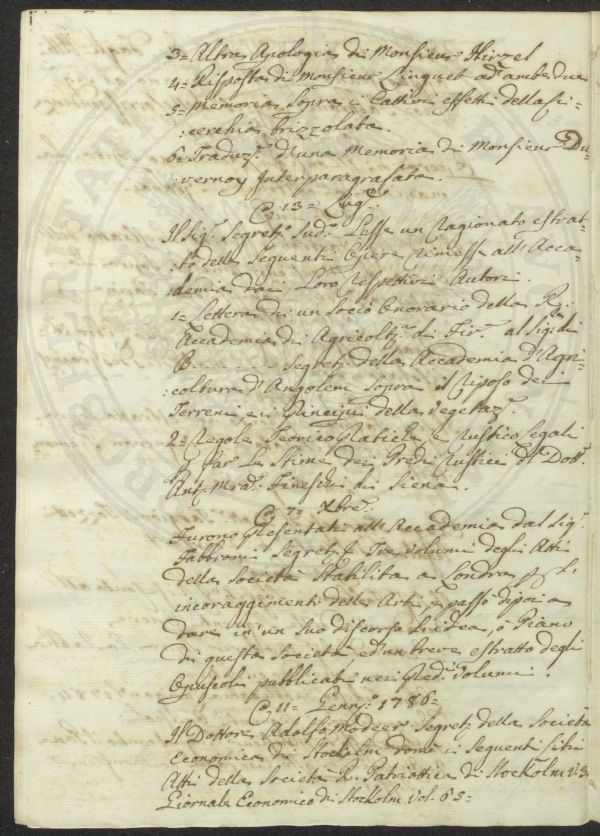 3= Altra Apologia di Monsieur Hirzel
4= Risposta di Monsieur Linguet ad ambe due
5= Memoria Sopra i Cattivi effetti della Ci-
:cerchia brizzolata.
6. Traduz.e d'una Memoria di Monsieur Du-
:vernoy Interparagrafata.
A 13= Lug.o
Il Sig.r Segret.o Sud.o Lesse un Ragionato estrat-
:to delle Seguenti Opere rimesse all'Acca-
:demia dai Loro respettivi Autori.
1= Lettera di un Socio Onorario della R.
Accademia di Agricolt.a di Fir.e al Sig.r di
B. Segret.o della Accademia d'Agri-
:coltura d'Angolem Sopra il Riposo dei
Terreni e i Principj della Vegetaz.e
2= Regole Teorico Pratiche, e Rustico Legali
Par Le Stime dei Predj Rustici del Dott.
Ant. Ma. Fineschi di Siena.
A 7= Xbre.
Furono Presentati all'Accademia dal Sig.r
Fabbroni Segret.o Tre Volumi degli Atti
della Società Stabilita a Londra p. l'
incoraggimento delle Arti, e passò dipoi a
dare in un Suo discorso L'idea, ò Piano
di questa Società, ed un breve estratto degli
Opuscoli pubblicati nei Pred.i Volumi.
A 11= Genn.o 1786=
Il Dottore Adolfo Modeer Segret.o della Società
Economica di Stockolm donò i Seguenti libri
Atti della Società R. Patriottica di Stockolm V. 3.
Giornale Economico di Stockolm Vol. 65=